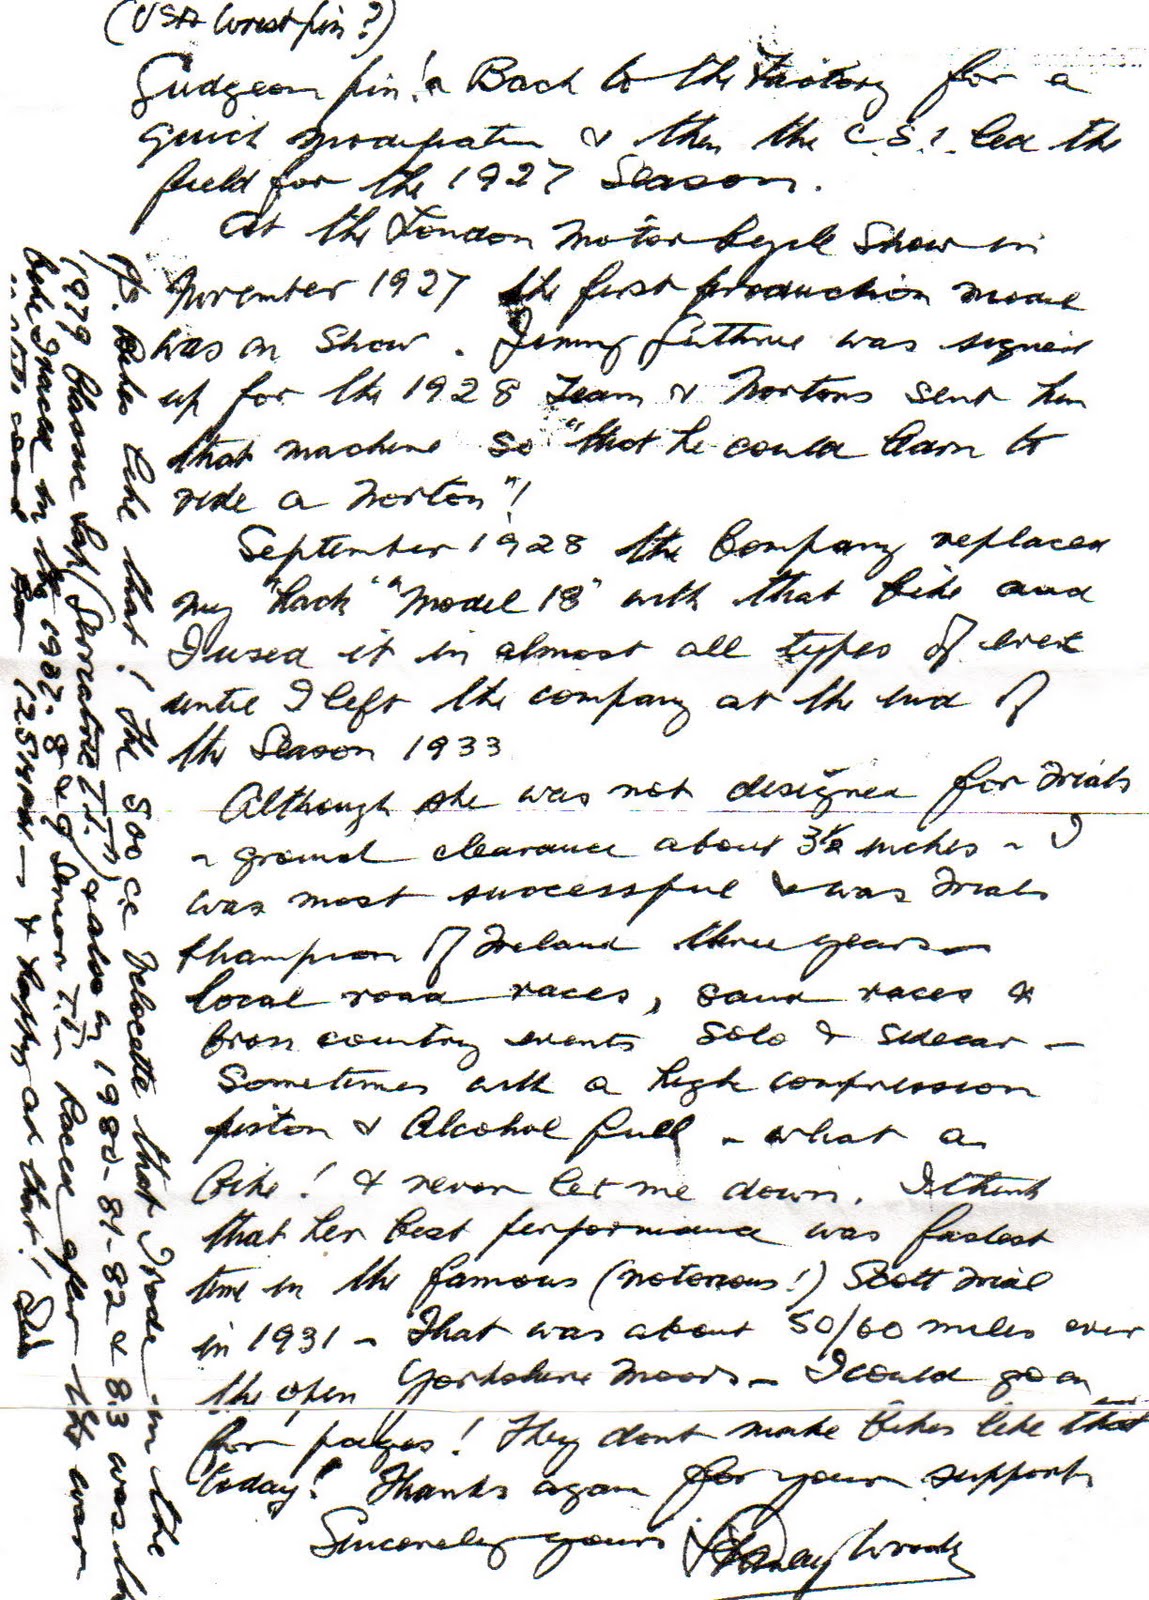 (USA Wrist pin?)
Gudgeon pin! Back to the Factory for a
quick modification & then the C.S.1. led the
field for the 1927 Season.
At the London Motor Cycle Show in
November 1927 the first production model
was on Show. Jimmy Guthrie was signed
up for the 1928 Team & Nortons sent him
that machine so "that he could learn to
ride a Norton"!
September 1928 the Company replaced
my "hack" "Model 18" with that bike and
I used it in almost all types of event
until I left the company at the end of
the Season 1933
Although she was not designed for Trials
- ground clearance about 3½ inches - I
was most successful & was Trials
Champion of Ireland three years -
local road races, sand races &
Cross country events Solo & sidecar -
Sometimes with a high compression
piston & Alcohol fuel - what a
Bike! & never let me down. I think
that her best performance was fastest
time in the famous (notorious!) Scott Trial
in 1931 - That was about 50/60 miles over
the open Yorkshire Moors - I could go on
for pages! They dont make bikes like that
today! Thanks again for your support
Sincerely yours Stanley Woods
P.S. Bikes like that! The 500 c.c Velocette that I rode in the
1979 Classic Lap & also in 1980-81-82 & 83 was the
bike I raced in the Senior T.T. - Raced after the war
& happy at that!